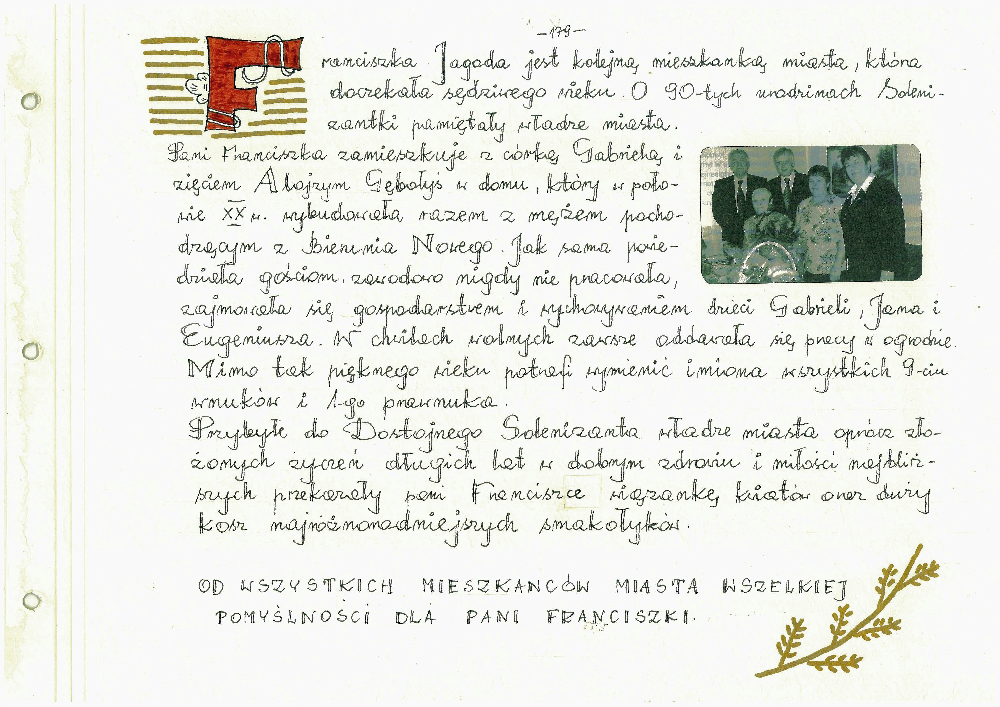 -179-
Franciszka Jagoda jest kolejną mieszkanką miasta, która
doczekała sędziwego wieku. O 90-tych urodzinach Soleni-
zantki pamiętały władze miasta.
Pani Franciszka zamieszkuje z córką Gabrielą i
zięciem Alojzym Gębołyś w domu, który w poło-
wie XX w. wybudowała razem z mężem pocho-
dzącym z Bierunia Nowego. Jak sama powie-
działa gościom, zawodowo nigdy nie pracowała,
zajmowała się gospodarstwem i wychowywaniem dzieci Gabrieli, Jana i
Eugeniusza. W chwilach wolnych zawsze oddawała się pracy w ogrodzie.
Mimo tak pięknego wieku potrafi wymienić imiona wszystkich 9-ciu
wnuków i 1-go prawnuka.
Przybyłe do Dostojnego Solenizanta władze miasta oprócz zło-
żonych życzeń długich lat w dobrym zdrowiu i miłości najbliż-
szych przekazały pani Franciszce wiązankę kwiatów oraz duży
kosz najróżnorodniejszych smakołyków.
OD WSZYSTKICH MIESZKANCÓW MIASTA WSZELKIEJ
POMYŚLNOŚCI DLA PANI FRANCISZKI.